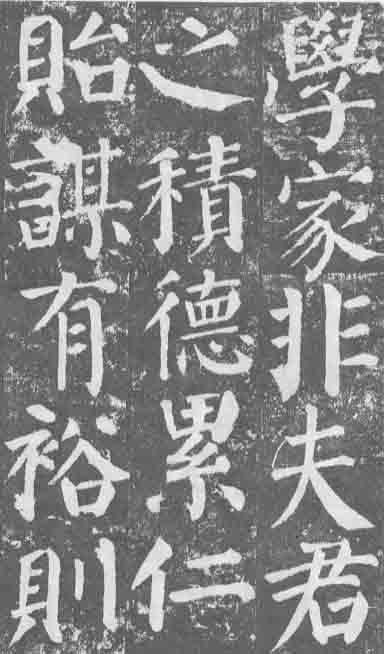 學家非夫君
之積德累仁
貽謀有裕則